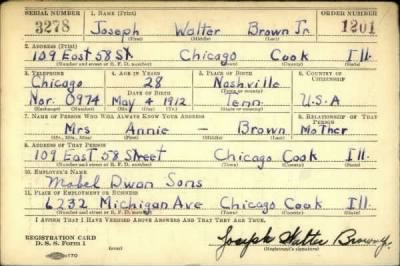 SERIAL NUMBER 1. NAME (Print) ORDER NUMBER
3278 Joseph Walter Brown Jr. 1201
(First) (Middle) (Last)
2. ADDRESS (Print)
109 East 58 St. Chicago Cook Ill.
(Number and street or R. F. D. number) (Town) (County) (State)
3. TELEPHONE 4. AGE IN YEARS 5. PLACE OF BIRTH 6. COUNTRY OF CITIZENSHIP
Chicago 28 Nashville
(Exchange) DATE OF BIRTH (Town or county)
Nor. 0974 May 4 1912 Tenn. U.S.A
(Number) (Mo.) (Day) (Yr.) (State or country)
7. NAME OF PERSON WHO WILL ALWAYS KNOW YOUR ADDRESS 8. RELATIONSHIP OF THAT PERSON
Mrs Annie — Brown Mother
(Mr., Mrs., Miss) (First) (Middle) (Last)
9. ADDRESS OF THAT PERSON
109 East 58 Street Chicago Cook Ill.
(Number and street or R. F. D. number) (Town) (County) (State)
10. EMPLOYER'S NAME
Mabel Dwan Sons
11. PLACE OF EMPLOYMENT OR BUSINESS
6232 Michigan Ave Chicago Cook Ill.
(Number and street or R. F. D. number) (Town) (County) (State)
I AFFIRM THAT I HAVE VERIFIED ABOVE ANSWERS AND THAT THEY ARE TRUE.
REGISTRATION CARD
D. S. S. Form 1 Joseph Walter Brown Jr
(Registrant's signature)